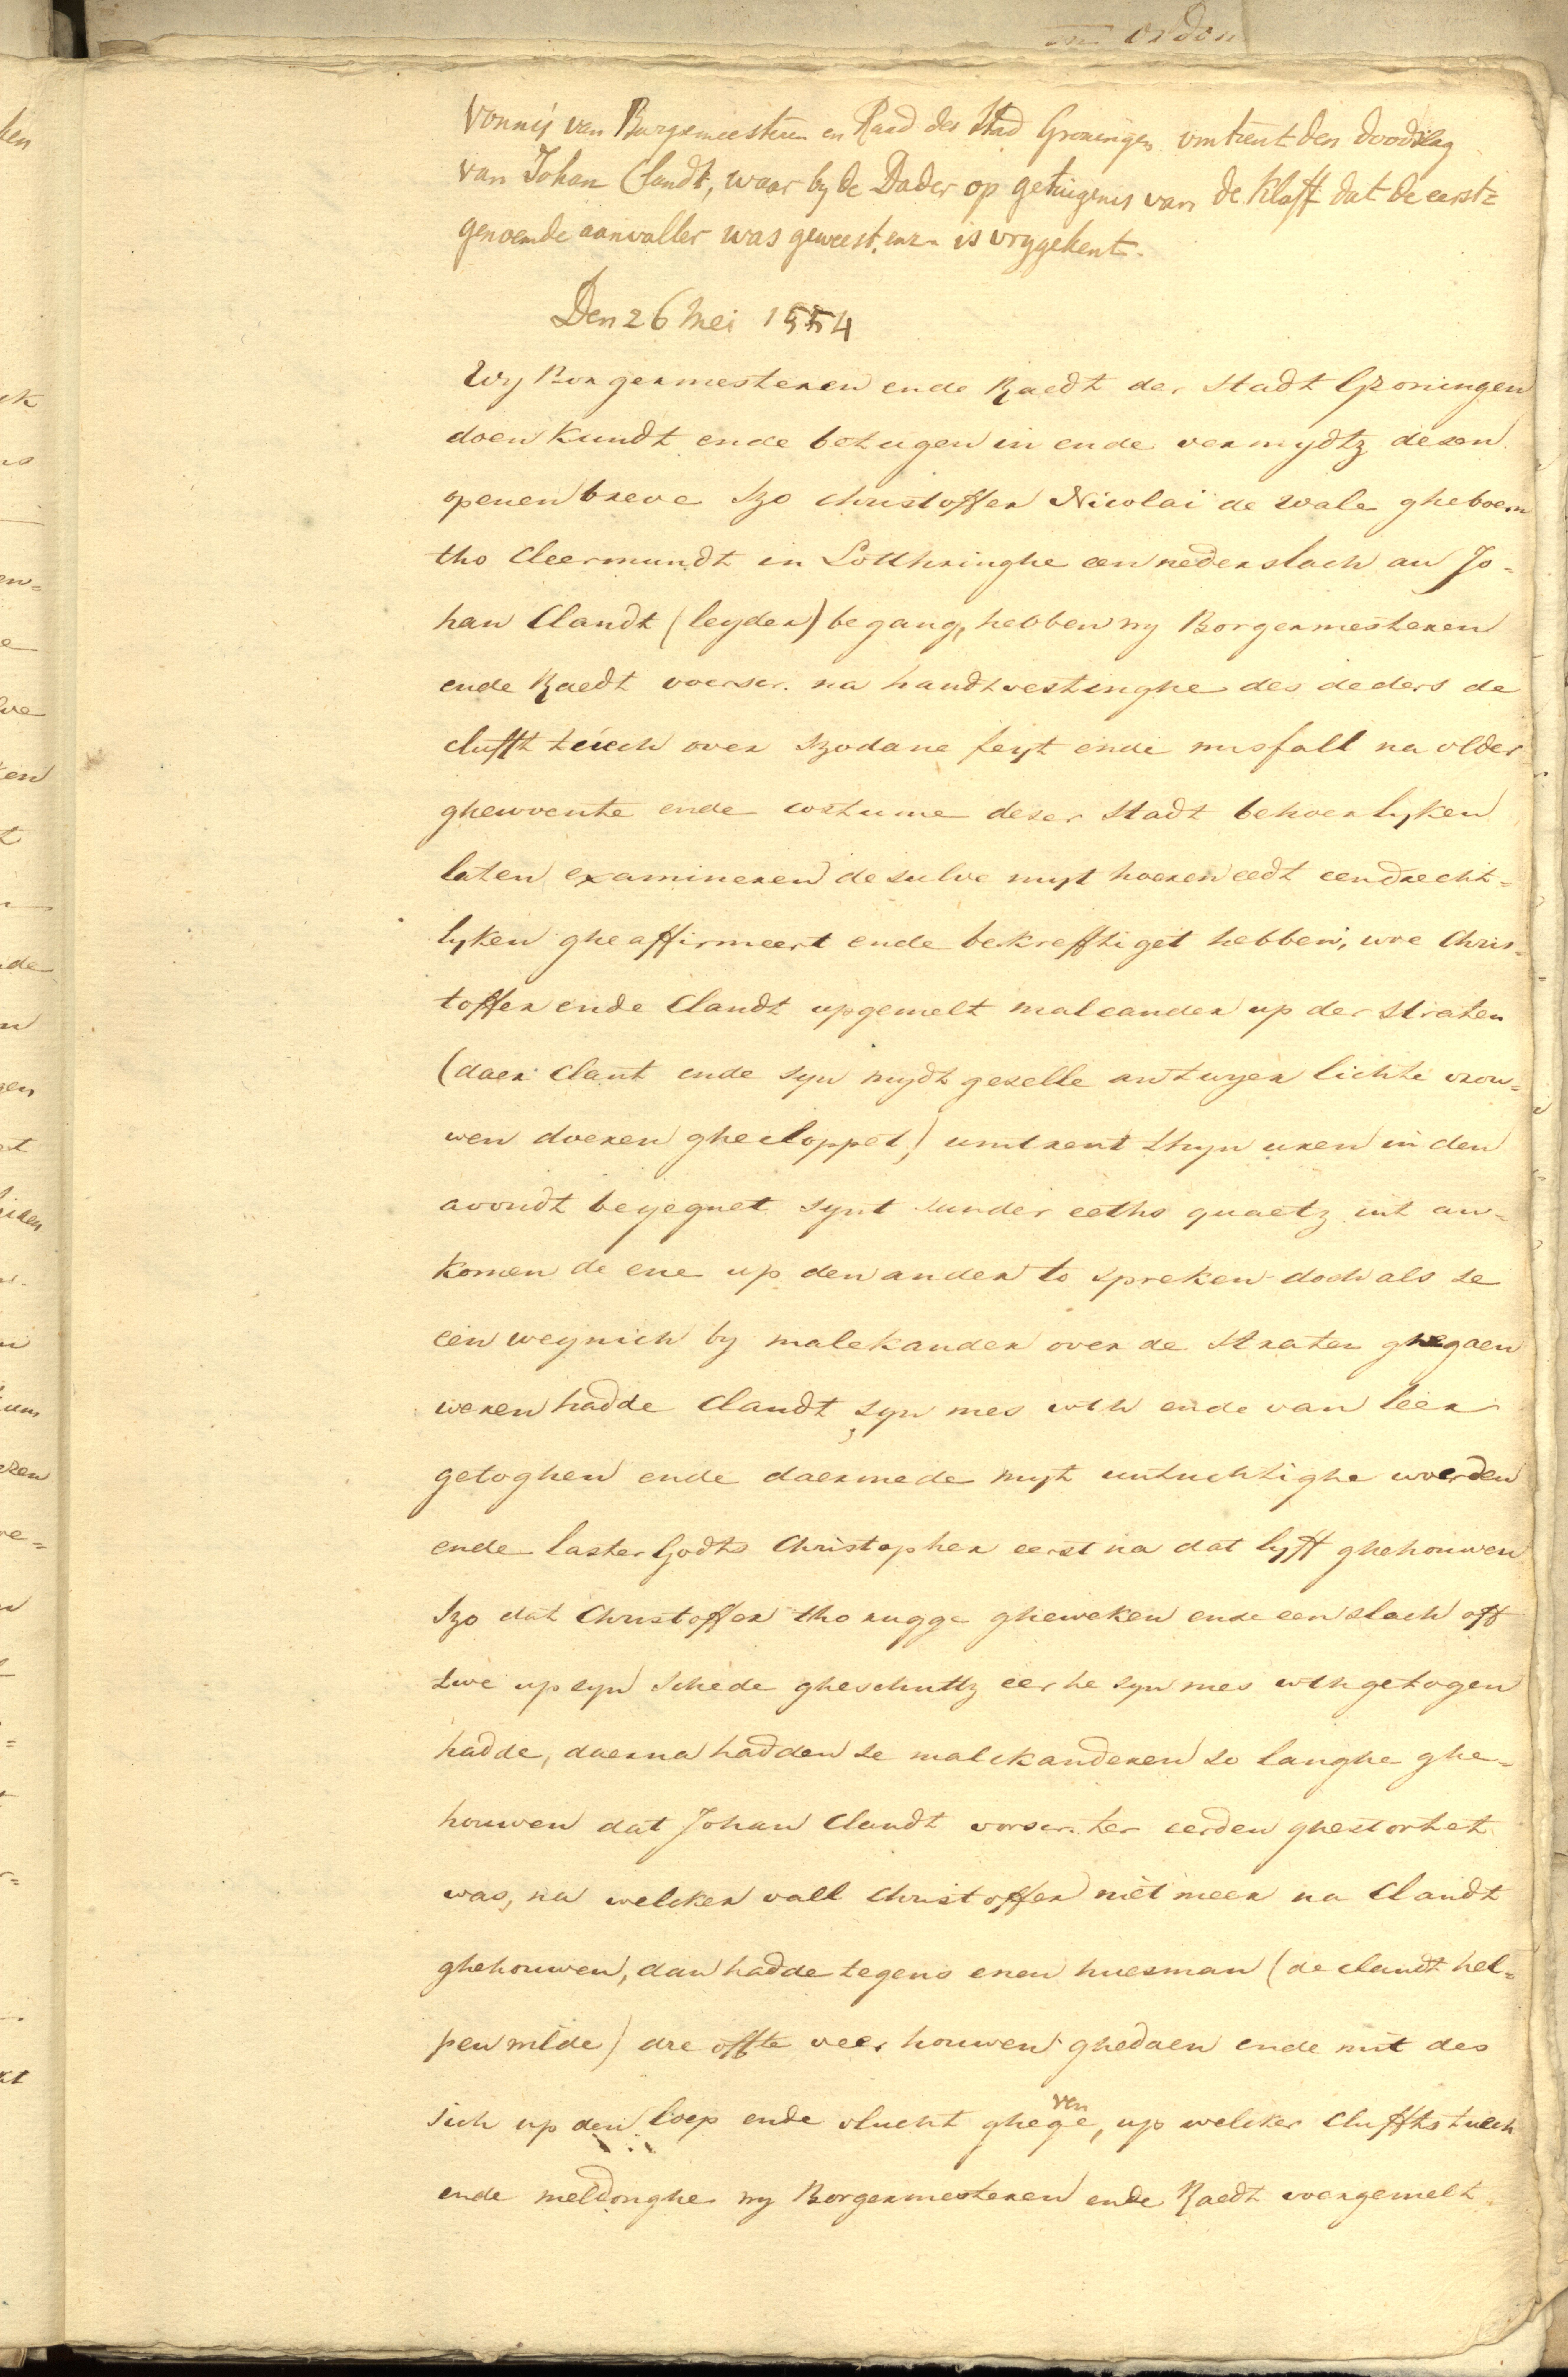 Vonnis van Burgemeesteren en Raad der Stad Groningen omtrent den doodslag
van Johan Clandt, waar by de Dader op getuigenis van de Kluft dat de eerst=
genoemde aanvaller was geweest. enz. is vrygekent.
Den 26 Mei 1554
Wy Borgermesteren ende Raedt der Stadt Groningen
doen kundt ende betugen in ende vermydtz desen
openen breve Szo Christoffer Nicolai de Wale gheboern
tho Cleermundt in Lotthringhe een nederslach an Jo-
han Clandt (leyder) begang, hebben wy Borgermesteren
ende Raedt voerscr. na handtvestinghe des deders de
clufft tuech over szodane feyt ende misfall na older
ghewoente ende costume deser Stadt behoerlyken
laten examineren de sulve myt hoeren eedt eendrecht-
lyken gheaffirmeert ende bekrefftiget hebben, woe Chris-
toffer ende Clandt upgemelt maleander up der straten
(daer Clant ende syn mydt geselle an twyer lichte vrou-
wen doeren ghecloppet) umtrent thyn uren in den
avondt beyegnet synt sunder eeths quaetz int an-
komen de ene up den ander to spreken doch als se
een weynich by malekander over de straten ghegaen
weren hadde Clandt syn mes wth ende van leer
getoghen ende daermede myt untuchtighe woerden
ende laster Godts Christopher eerst na dat lyff ghehouwen
Szo dat Christoffer tho rugge gheweken ende een slach off
twe up syn schede gheschuttz eer he syn mes wthgetogen
hadde, daerna hadden se malekanderen so langhe ghe-
houwen dat Johan Clandt vorscr. ter eerden ghestortet
was, na welcker vall Christoffer niet meer na Clandt
ghehouwen, dan hadde tegens enen huesman (de Clandt hel-
pen wilde) dre offte veer houwen ghedaen ende mit des
sich up den loep ende vlucht ghegeven, up welcker clufftstuech
ende meldonghe wy Borgermesteren ende Raedt voergemelt